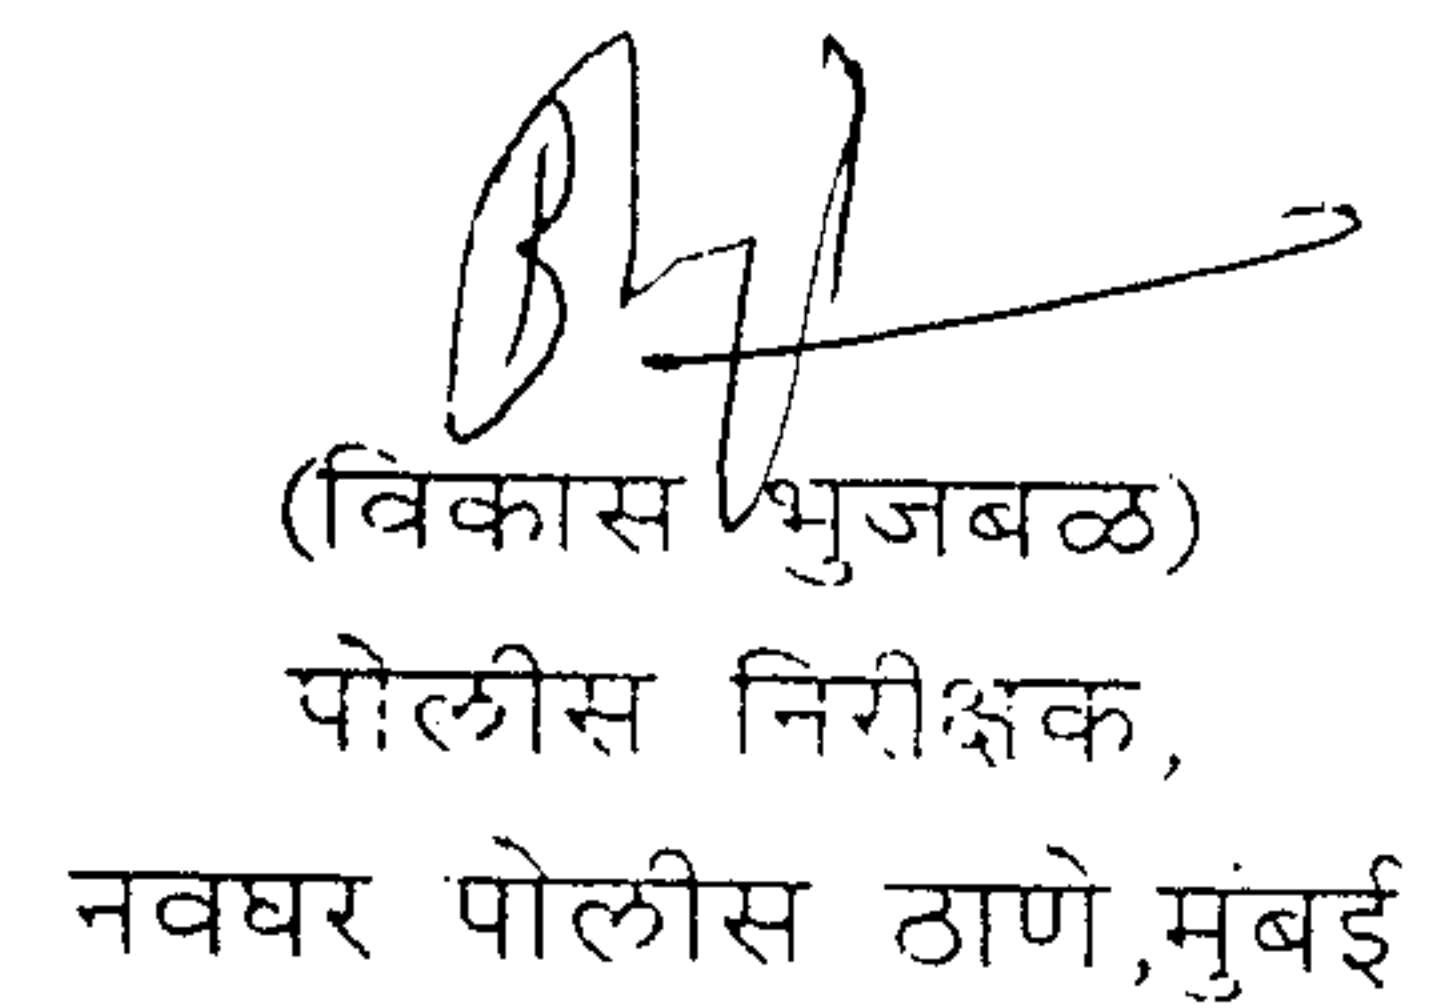 (विकास भुजबळ)
पोलीस निरीक्षक,
नवघर पोलीस ठाणे,मुंबई